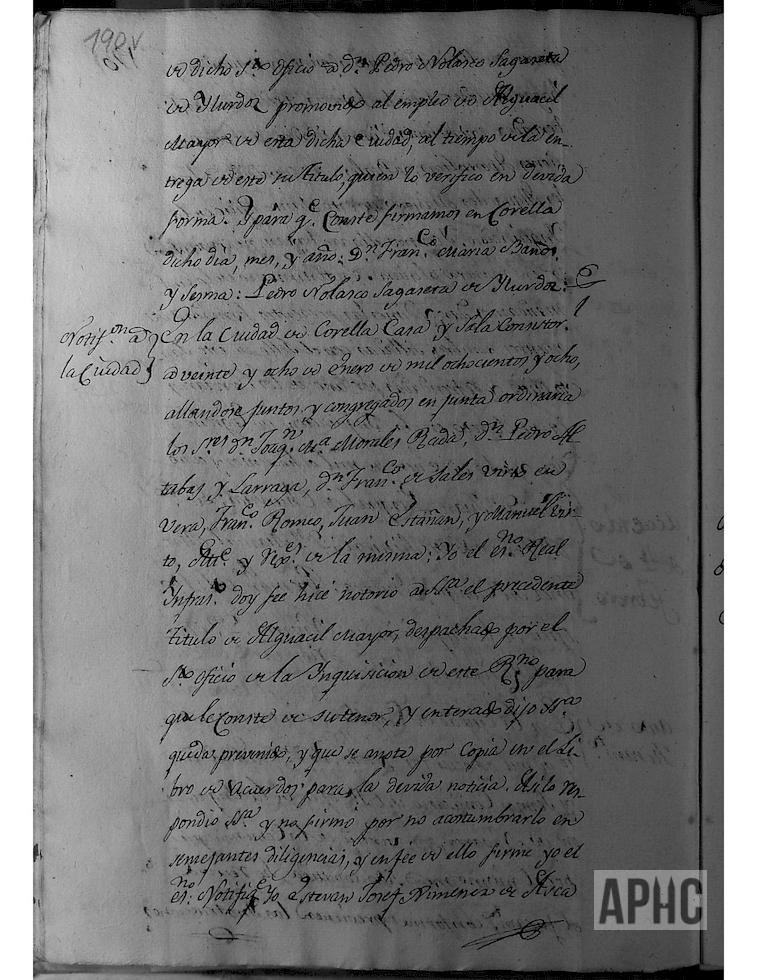 190v
de dicho Sto. Oficio a dn. Pedro Nolasco Sagaseta
de Ylurdoz promovido al empleo de Alguacil
Mayor de esta dicha Ciudad, al tiempo de la en-
trega de este su Titulo, quien lo verificó en devida
forma. Y para q.e Conste firmamos en Corella
dicho dia, mes, y año. Dn. Franco. Maria Baños
y Sesma: Pedro Nolasco Sagaseta de Ylurdoz:
Notifon. a
la Ciudad
En la Ciudad de Corella Casa y Sala Consistor.
a veinte y ocho de Enero de mil ochocientos y ocho,
allandose juntos y congregados en junta ordinaria
los Sres. dn. Joaqn. Ma. Morales Rada, dn. Pedro Al-
tabas y Larraga, dn. Franco. de Sales Virto en
Vera, Franco. Romeo, Juan Estañan, y Manuel Vir-
to, y de la misma: Yo el esno. Real
Ynfrasto. doy fee hice notorio a SSa. el precedente
Titulo de Alguacil Mayor, despachado por el
Sto. Oficio de la Ynquisicion de este Rno. para
que le Conste de su tenor, y enterado dijo SSa.
queda prevenido, y que se anote por Copia en el Li-
bro de Acuerdos para la devida noticia. Asi lo res-
pondió SSa. y no firmó por no acostumbrarlo en
semejantes diligencias, y en fee de ello firmé yo el
esno. Notifiqe. Yo Estevan Josef Ximenez de Asca
APHC